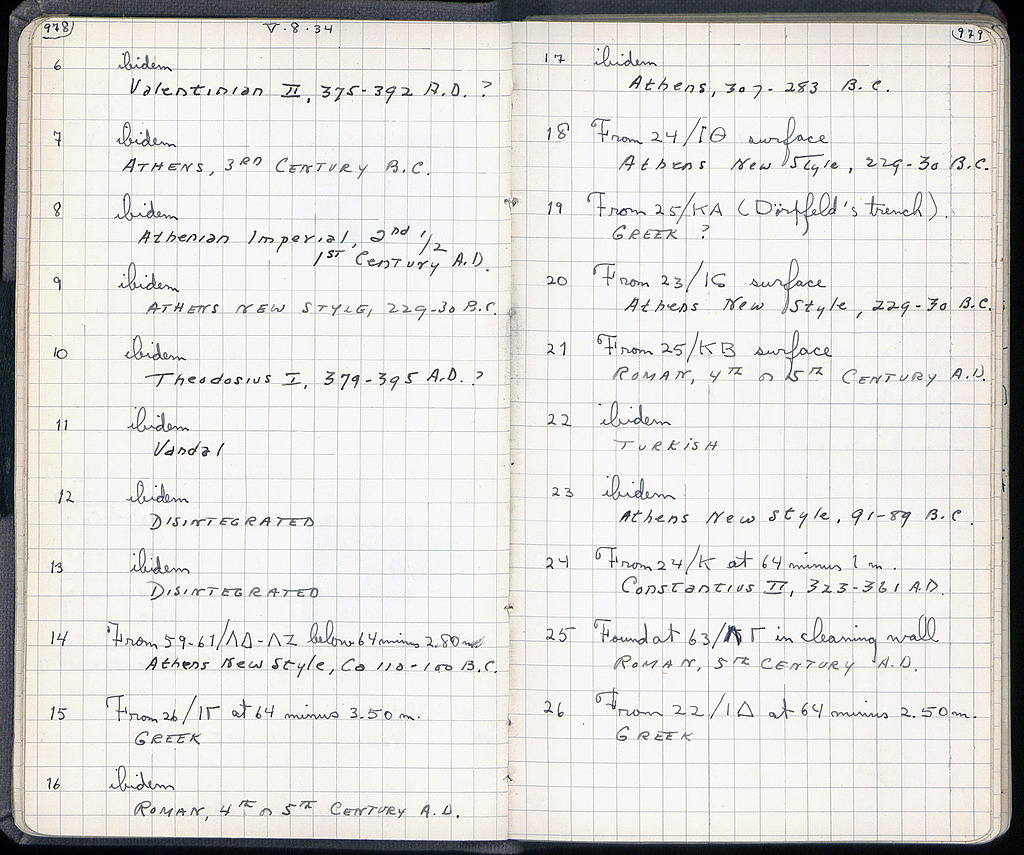 978
V·8·34
6 ibidem
Valentinian II, 375-392 A.D. ?
7 ibidem
ATHENS, 3RD CENTURY B.C.
8 ibidem
Athenian Imperial, 2nd 1/2
1ST Century A.D.
9 ibidem
ATHENS NEW STYLE, 229-30 B.C.
10 ibidem
Theodosius I, 379-395 A.D. ?
11 ibidem
Vandal
12 ibidem
DISINTEGRATED
13 ibidem
DISINTEGRATED
14 From 59-61/ΛΔ-ΛΖ below 64 minus 2.80 m
Athens New Style, Ca 110-100 B.C.
15 From 26/ΙΓ at 64 minus 3.50 m.
GREEK
16 ibidem
ROMAN, 4TH or 5TH CENTURY A.D.
979
17 ibidem
Athens, 307-283 B.C.
18 From 24/ΙΘ surface
Athens New Style, 229-30 B.C.
19 From 25/ΚΑ (Dörpfeld's trench).
GREEK ?
20 From 23/ΙϚ surface
Athens New Style, 229-30 B.C.
21 From 25/ΚΒ surface
ROMAN, 4TH or 5TH CENTURY A.D.
22 ibidem
TURKISH
23 ibidem
Athens New Style, 91-89 B.C.
24 From 24/Κ at 64 minus 1 m.
Constantius II, 323-361 A.D.
25 Found at 63/ Γ in cleaning wall
ROMAN, 5TH CENTURY A.D.
26 From 22/ΙΔ at 64 minus 2.50 m.
GREEK